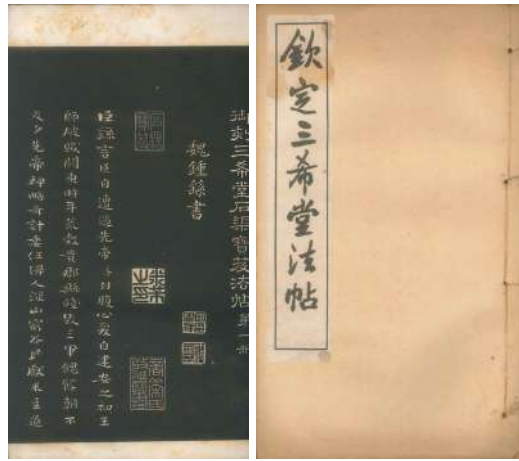 御刻三希堂石渠寶笈法帖第一冊
魏鍾繇書
臣繇言臣自遭遇先帝忝列腹心爰自建安之初王
師破賊關東時年荒穀貴郡縣殘毀三軍餽饟朝不
及夕先帝神略奇計委任得人深山窮谷民獻米豆道
欽定三希堂法帖